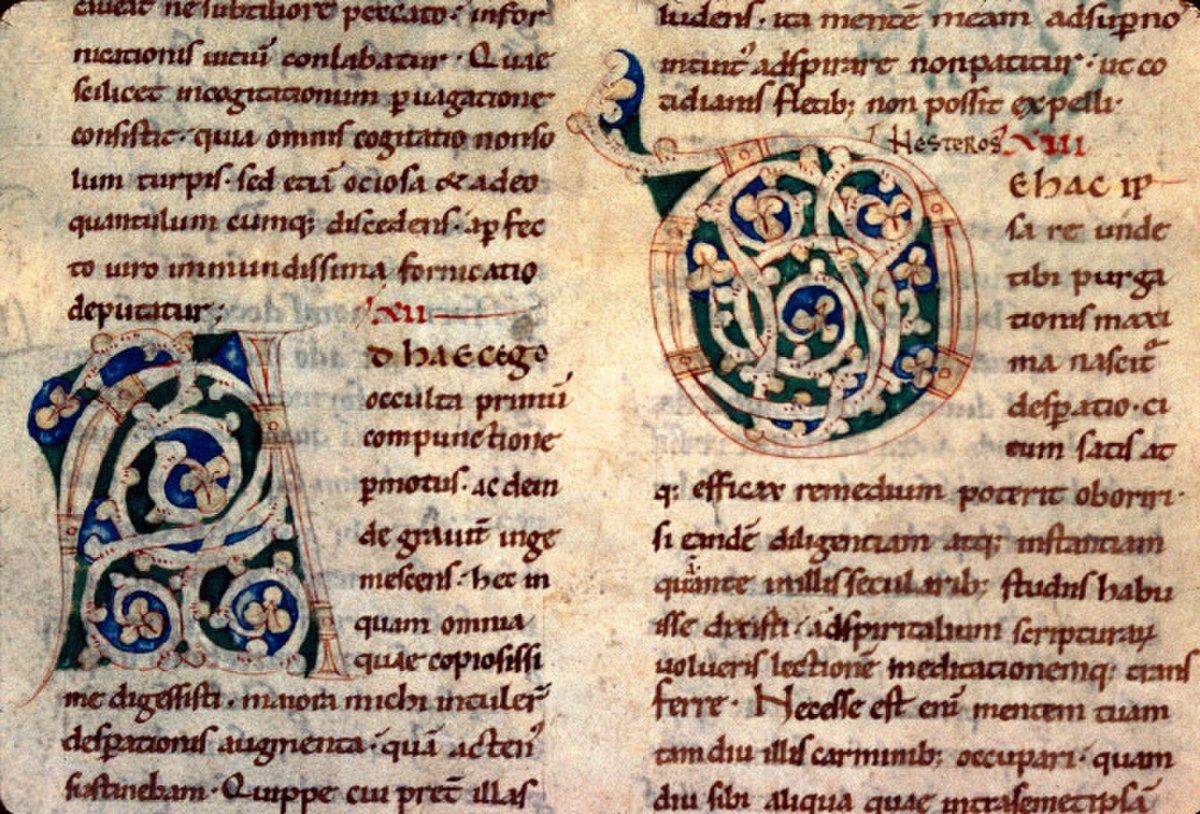 ciueat ne subtiliore peccato· infor
nicationis uitiū conlabatur· Quae
scilicet incogitationum ꝑuagatione
consistit· quia omnis cogitatio nonso
lum turpis· sed etiā ociosa & adeo
quantulum cūmq; discedens· aꝑfec
to uiro inmundissima fornicatio
deputatur;
XII
A
D HAEC EGO
occulta primū
compunctione
ꝑmotus· ac dein
de grauit̄ inge
mescens· hec in
quam omnia
quae copiosissi
me digessisti· maiora michi intuler̄
desꝑationis augmenta· quā actenꝰ
sustinebam· Quippe cui pret̄ illas
ludens· ita mentē meam adsuꝑno
intuitꝰ adspirare nonpatitur· ut co
tidianis fletib; non possit expelli·
HESTEROS XIII
D
E HAC IP
sa re unde
tibi purga
tionis maxi
ma nascit᷑
desꝑatio· ci
tum satis at
q; efficax remedium poterit oboriri·
si eandē diligentiam atq; instantiam
quāmte inillis secularib; studiis habu
isse dixisti· adspiritalium scripturaꝝ
uolueris lectionē meditationemq; trans
ferre· Necesse est enī mentem tuam
tamdiu illis carminib; occupari· quam
diu sibi aliqua quae intrasemetipsā